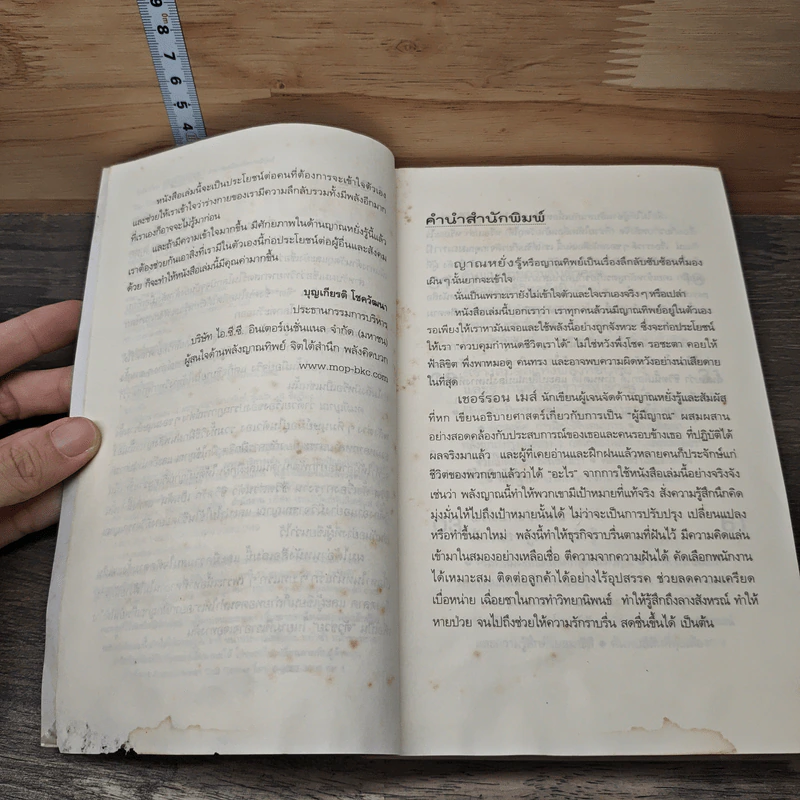 9
8
7
6
5
4
หนังสือเล่มนี้จะเป็นประโยชน์ต่อคนที่ต้องการจะเข้าใจตัวเอง
และช่วยให้เราเข้าใจว่าร่างกายของเรามีความลึกลับรวมทั้งมีพลังอีกมาก
ที่เราเองก็อาจจะไม่รู้มาก่อน
และถ้ามีความเข้าใจมากขึ้น มีศักยภาพในด้านญาณหยั่งรู้นี้แล้ว
เราต้องช่วยกันเอาสิ่งที่เรามีในตัวเองนี้ก่อประโยชน์ต่อผู้อื่นและสังคม
ด้วย ก็จะทำให้หนังสือเล่มนี้มีคุณค่ามากขึ้น
บุญเกียรติ โชควัฒนา
ประธานกรรมการบริหาร
บริษัท ไอ.ซี.ซี. อินเตอร์เนชั่นแนล จำกัด (มหาชน)
ผู้สนใจด้านพลังญาณทิพย์ จิตใต้สำนึก พลังคิดบวก
www.mop-bkc.com
คำนำสำนักพิมพ์
ญาณหยั่งรู้หรือญาณทิพย์เป็นเรื่องลึกลับซับซ้อนที่มอง
เผินๆ นั้นยากจะเข้าใจ
นั่นเป็นเพราะเรายังไม่เข้าใจตัวและใจเราเองจริงๆ หรือเปล่า
หนังสือเล่มนี้บอกเราว่า เราทุกคนล้วนมีญาณทิพย์อยู่ในตัวเอง
รอเพียงให้เราหมั่นเจอและใช้พลังนี้อย่างถูกจังหวะ ซึ่งจะก่อประโยชน์
ให้เรา "ควบคุมกำหนดชีวิตเราได้" ไม่ใช่หวังพึ่งโชค รอชะตา คอยให้
ฟ้าลิขิต พึ่งพาหมอดู คนทรง และอาจพบความผิดหวังอย่างน่าเสียดาย
ในที่สุด
เชอร์รอน เมส์ นักเขียนผู้เจนจัดด้านญาณหยั่งรู้และสัมผัส
ที่หก เขียนอธิบายศาสตร์เกี่ยวกับการเป็น "ผู้มีญาณ" ผสมผสาน
อย่างสอดคล้องกับประสบการณ์ของเธอและคนรอบข้างเธอ ที่ปฏิบัติได้
ผลจริงมาแล้ว และผู้ที่เคยอ่านและฝึกฝนแล้วหลายคนก็ประจักษ์แก่
ชีวิตของพวกเขาแล้วว่าได้ "อะไร" จากการใช้หนังสือเล่มนี้อย่างจริงจัง
เช่นว่า พลังญาณนี้ทำให้พวกเขามีเป้าหมายที่แท้จริง สั่งความรู้สึกนึกคิด
มุ่งมั่นให้ไปถึงเป้าหมายนั้นได้ ไม่ว่าจะเป็นการปรับปรุง เปลี่ยนแปลง
หรือทำขึ้นมาใหม่ พลังนี้ทำให้ธุรกิจราบรื่นตามที่ฝันไว้ มีความคิดแล่น
เข้ามาในสมองอย่างเหลือเชื่อ ตีความจากความฝันได้ คัดเลือกพนักงาน
ได้เหมาะสม ติดต่อลูกค้าได้อย่างไร้อุปสรรค ช่วยลดความเครียด
เบื่อหน่าย เฉื่อยชาในการทำวิทยานิพนธ์ ทำให้รู้สึกถึงลางสังหรณ์ ทำให้
หายป่วย จนไปถึงช่วยให้ความรักราบรื่น สดชื่นขึ้นได้ เป็นต้น